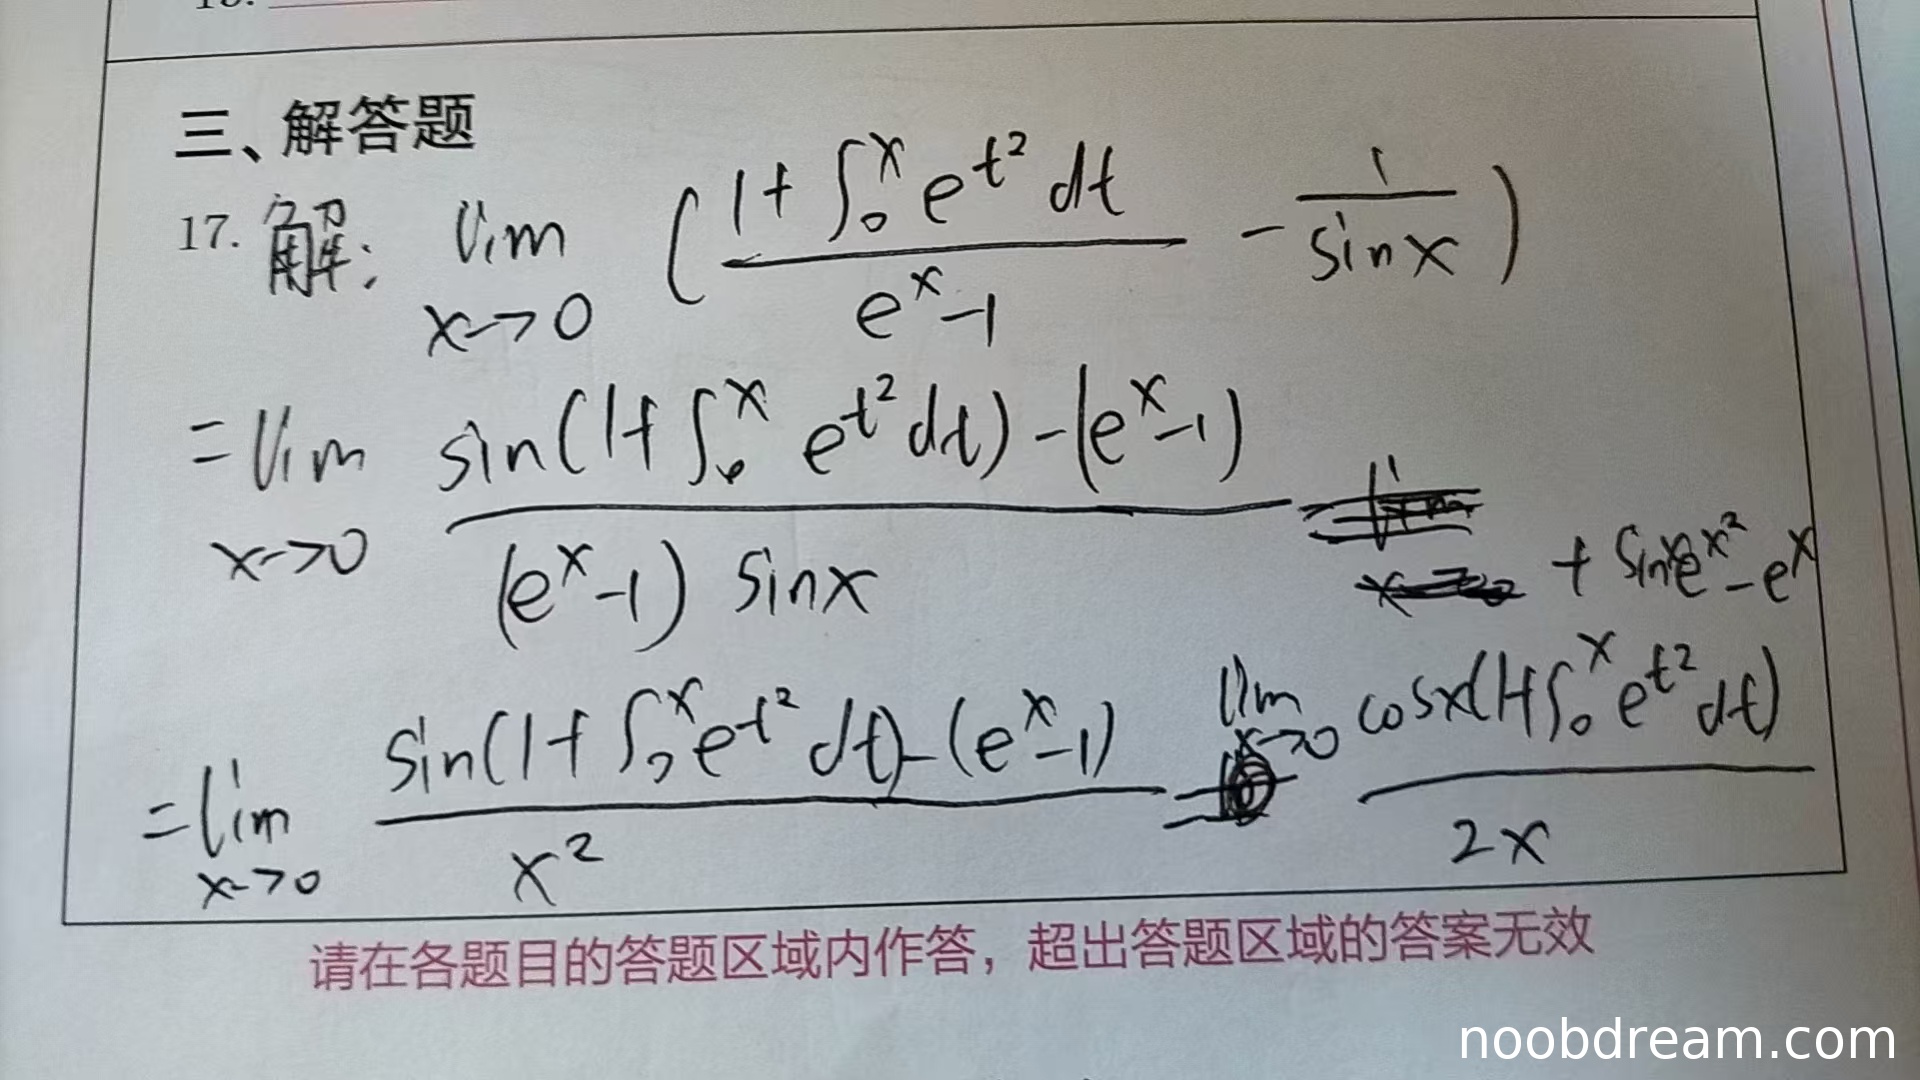 三、解答题
17. 解: lim x→0 ( (1+∫₀ˣ e^{t²} dt)/(e^x-1) - 1/sinx )
=lim x→0 (sin(1+∫₀ˣ e^{t²} dt)-(e^x-1))/((e^x-1) sinx)
+ sinxe^{x²}-e^x
=lim x→0 (sin(1+∫₀ˣ e^{t²} dt)-(e^x-1))/x² = lim x→0 cosx(1+∫₀ˣ e^{t²} dt)/2x
请在各题目的答题区域内作答，超出答题区域的答案无效
noobdream.com